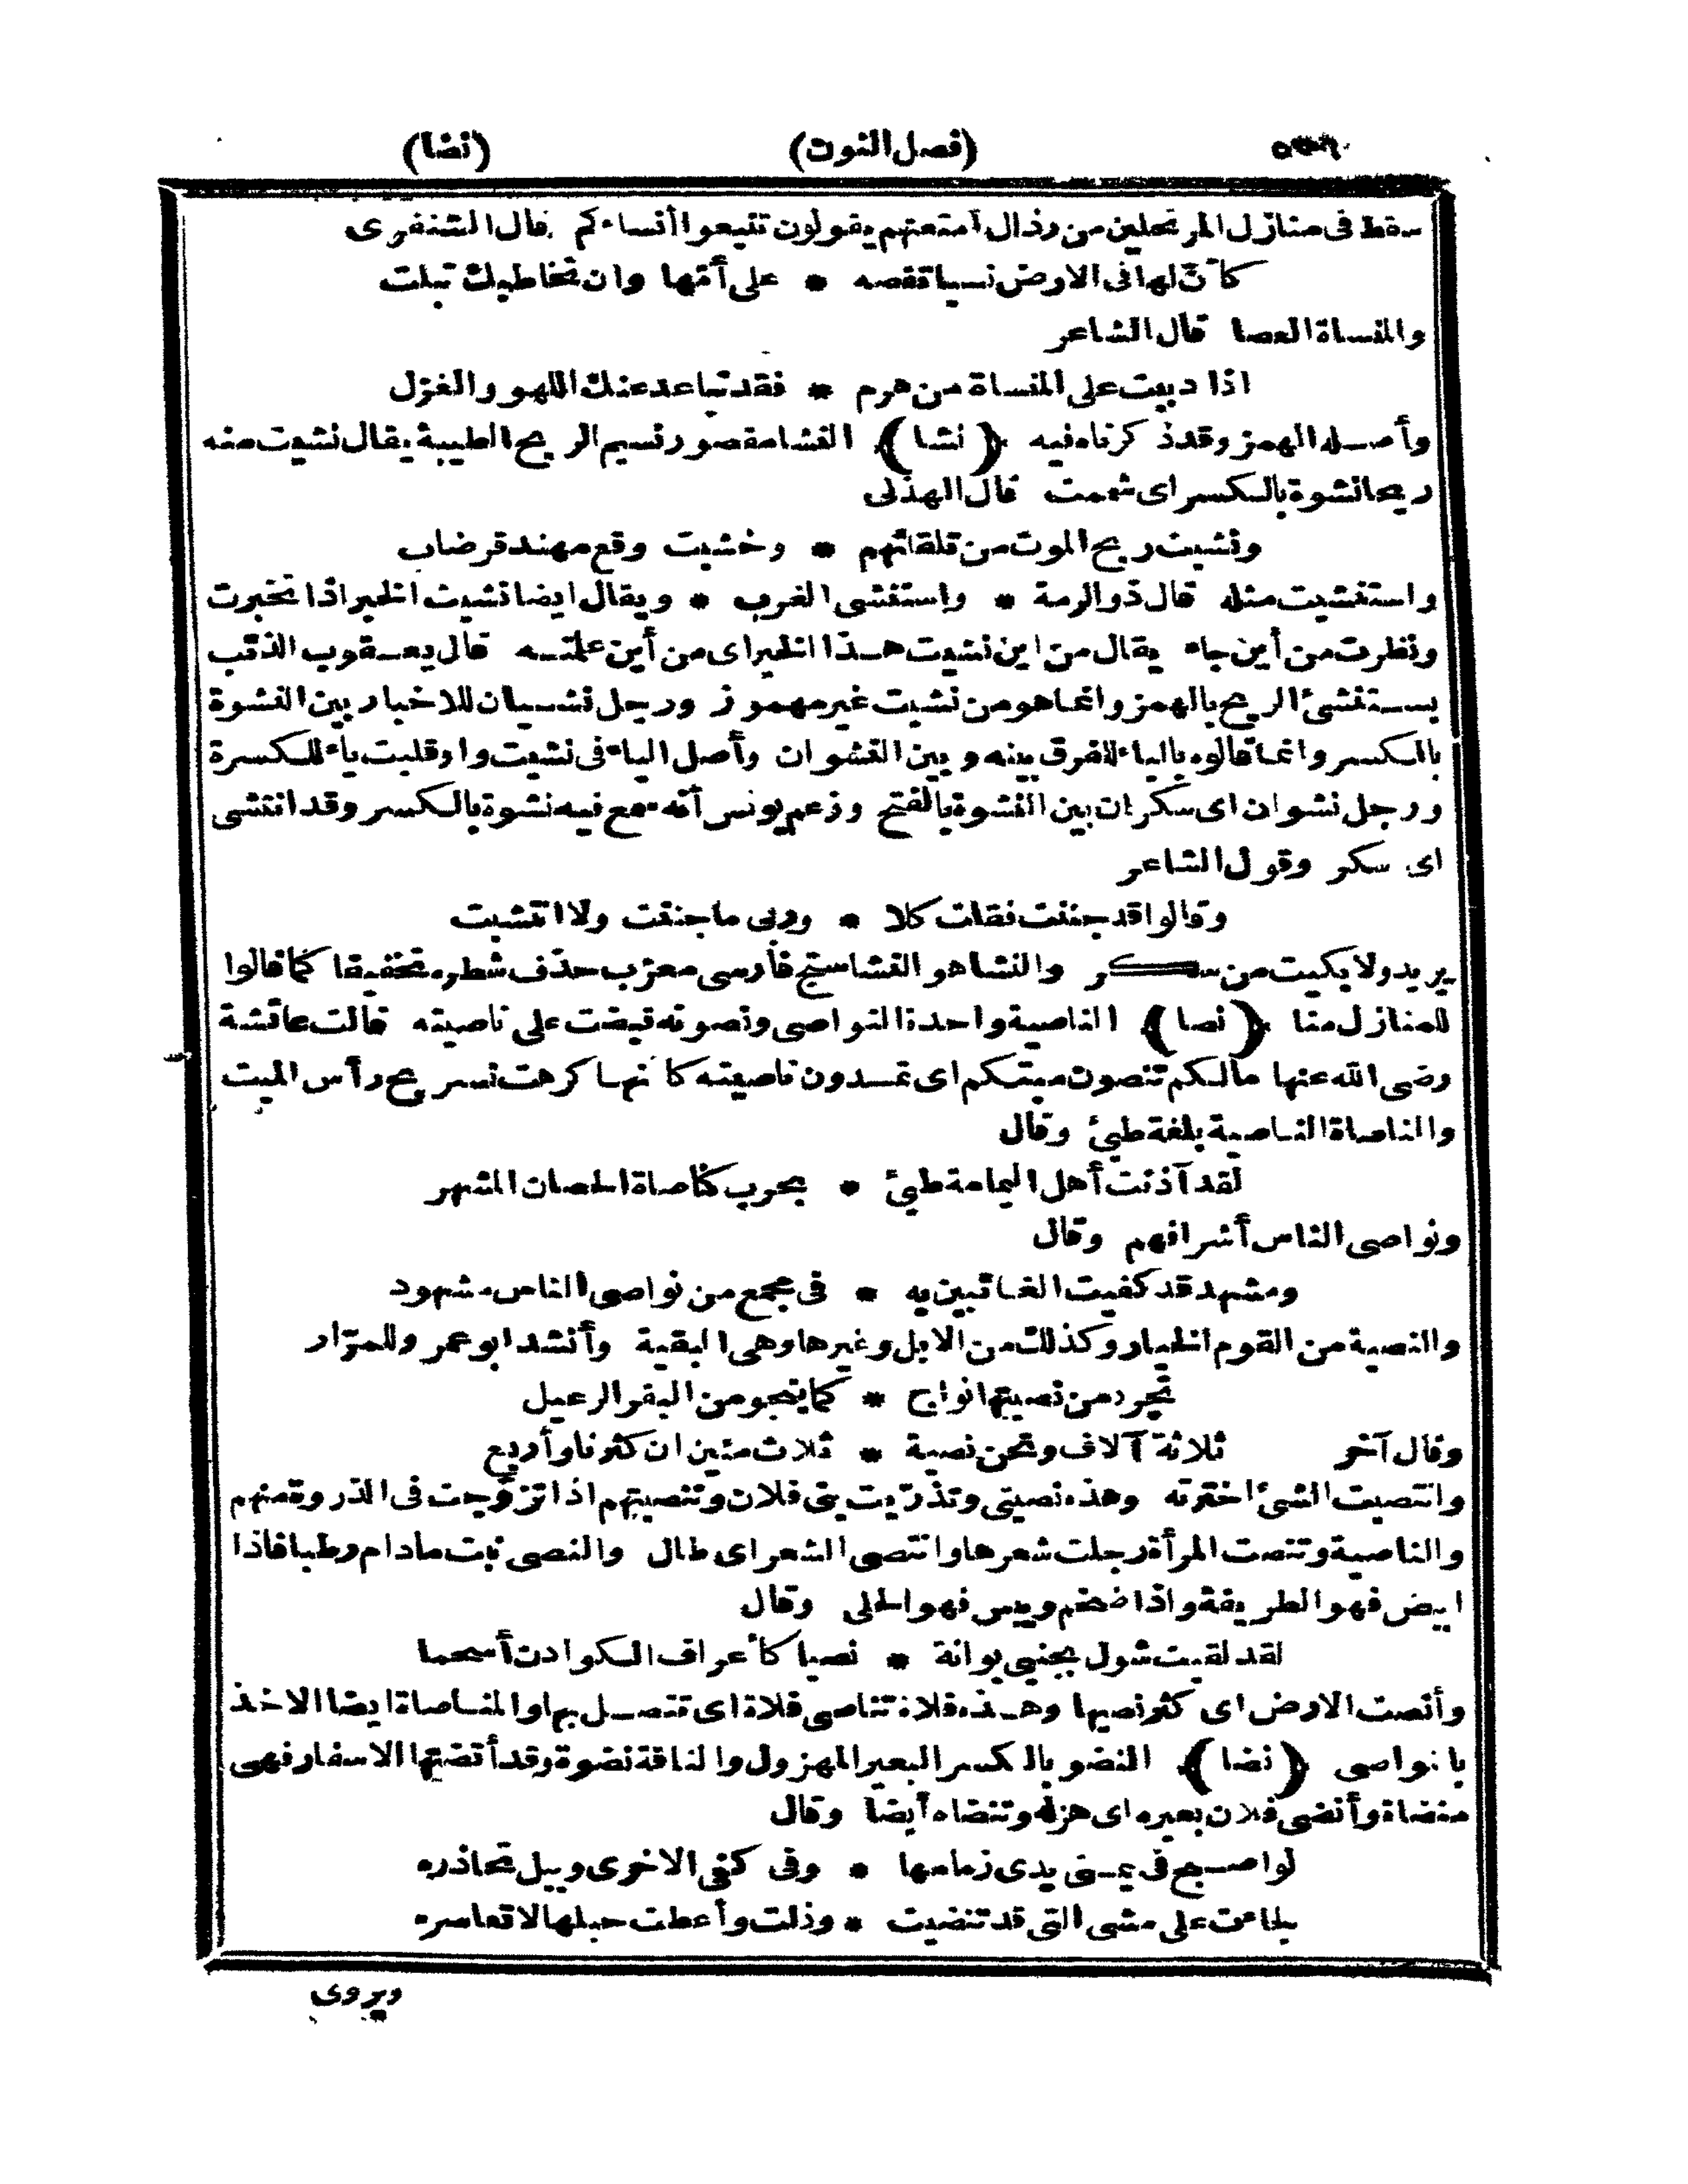 (فصل النون) (نضا)
سقط فى منازل المرتحلين من رذال أمتعتهم يقولون تتبعوا أنساءكم قال الشنفرى
كأنّ لها فى الارض نسيا تقصه * على أمّها وان تخاطبك تبلت
والمنساة العصا قال الشاعر
اذا دببت على المنساة من هرم * فقد تباعد عنك اللهو والغزل
وأصله الهمز وقد ذكرناه فيه (نشا) النشا مقصور نسيم الريح الطيبة يقال نشيت منه
ريحا نشوة بالكسر اى شممت قال الهذلى
ونشيت ريح الموت من تلقائهم * وخشيت وقع مهند قرضاب
واستنشيت مثله قال ذوالرمة * واستنشى الغرب * ويقال ايضا نشيت الخبر اذا تخبرت
ونظرت من أين جاء يقال من اين نشيت هذا الخبر اى من أين علمته قال يعقوب الذئب
يستنشئ الريح بالهمز وانما هو من نشيت غير مهموز ورجل نشيان للاخبار بين النشوة
بالكسر وانما قالوه بالياء للفرق بينه وبين النشوان وأصل الياء فى نشيت واو قلبت ياء للكسرة
ورجل نشوان اى سكران بين النشوة بالفتح وزعم يونس أنه سمع فيه نشوة بالكسر وقد انتشى
اى سكر وقول الشاعر
وقالوا قد جننت فقلت كلا * وربى ما جننت ولا انتشيت
يريد ولا بكيت من سكر والنشا هو النشاستج فارسى معرّب حذف شطره تخفيفا كما قالوا
للمنازل منا (نصا) الناصية واحدة النواصى ونصوته قبضت على ناصيته قالت عائشة
رضى الله عنها مالكم تنصون ميتكم اى تمدون ناصيته كانها كرهت تسريح رأس الميت
والناصاة الناصية بلغة طيئ وقال
لقد آذنت أهل اليمامة طيئ * بحرب كناصاة الحصان المشهر
ونواصى الناس أشرافهم وقال
ومشهد قد كفيت الغائبين به * فى مجمع من نواصى الناس مشهود
والنصية من القوم الخيار وكذلك من الابل وغيرها وهى البقية وأنشد ابو عمرو للمرّار
تجرد من نصيتها نواج * كما ينجو من البقر الرعيل
وقال آخر ثلاثة آلاف ونحن نصية * ثلاث مئين ان كثرنا وأربع
وانتصيت الشئ اخترته وهذه نصيتى وتذرّيت بنى فلان وتنصيتهم اذا تزوّجت فى الذروة منهم
والناصية وتنصت المرأة رجلت شعرها وانتصى الشعر اى طال والنصى نبت مادام رطبا فاذا
ابيض فهو الطريفة واذا ضخم ويبس فهو الحلى وقال
لقد لقيت شول بجنبى بوانة * نصيا كأعراف الكوادن أسحما
وأنصت الارض اى كثر نصيها وهذه فلاة تناصى فلاة اى تتصل بها والمناصاة ايضا الاخذ
بالنواصى (نضا) النضو بالكسر البعير المهزول والناقة نضوة وقد أنضتها الاسفار فهى
منضاة وأنضى فلان بعيره اى هزله وتنضاه أيضا وقال
لو اصبح فى يمنى يدى زمامها * وفى كفى الاخرى وبيل تحاذره
لجاءت على مشى التى قد تنضيت * وذلت وأعطت حبلها لا تعاسره
ويروى